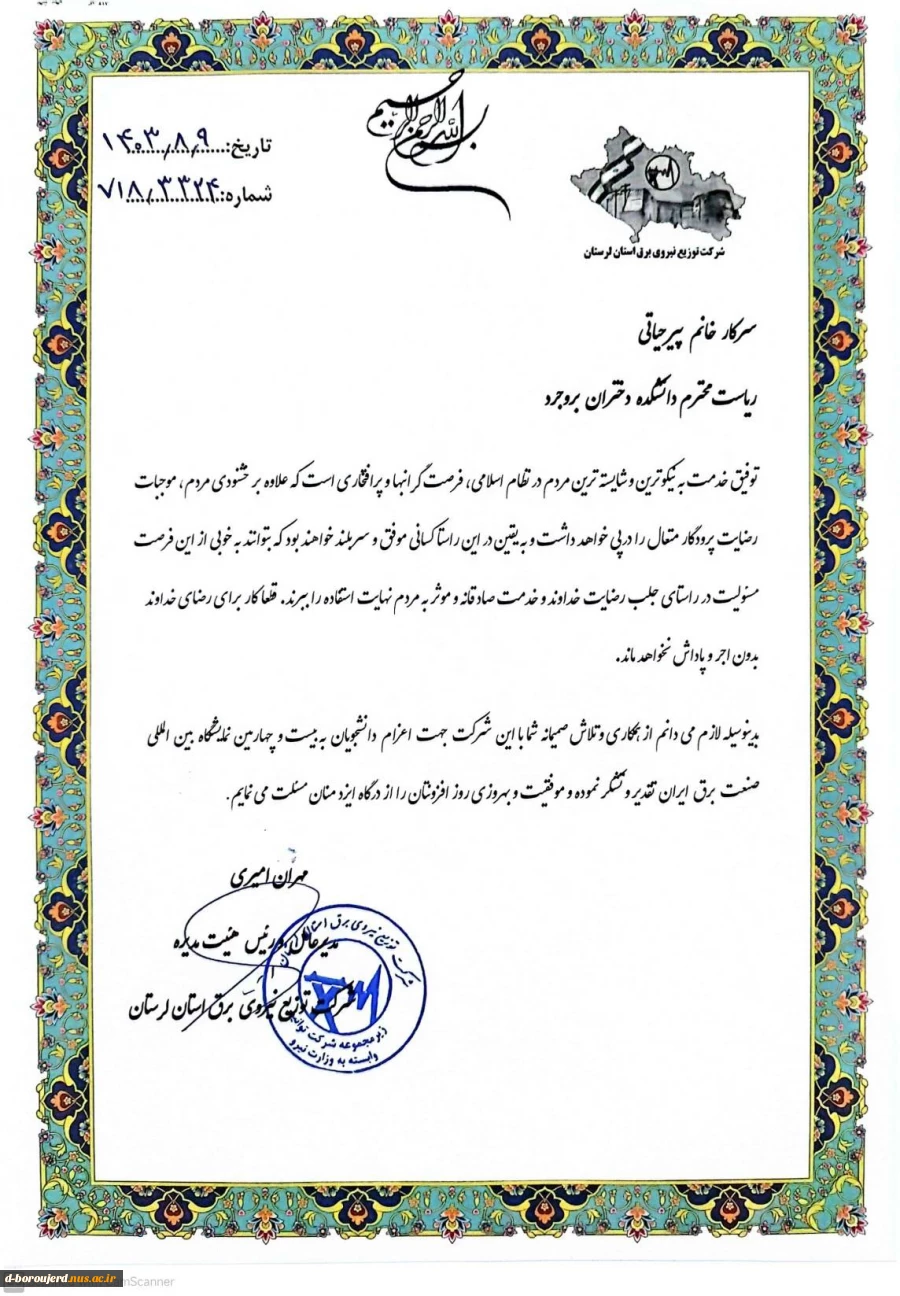 بسم الله الرحمن الرحیم
تاریخ: ۱۴۰۳/۸/۹
شماره: ۷۱۸/۳۳۲۴
شرکت توزیع نیروی برق استان لرستان
سرکار خانم پیرحیاتی
ریاست محترم دانشکده دختران بروجرد
توفیق خدمت به نیکوترین و شایسته ترین مردم در نظام اسلامی، فرصت گرانبها و پرافتخاری است که علاوه بر خشنودی مردم، موجبات
رضایت پرودگار متعال را در پی خواهد داشت و به یقین در این راستا کسانی موفق و سربلند خواهند بود که بتوانند به خوبی از این فرصت
مسئولیت در راستای جلب رضایت خداوند و خدمت صادقانه و موثر به مردم نهایت استفاده را ببرند. قطعا کار برای رضای خداوند
بدون اجر و پاداش نخواهد ماند.
بدینوسیله لازم می دانم از همکاری و تلاش صمیمانه شما با این شرکت جهت اعزام دانشجویان به بیست و چهارمین نمایشگاه بین المللی
صنعت برق ایران تقدیر و تشکر نموده و موفقیت و بهروزی روز افزونتان را از درگاه ایزد منان مسئلت می نمایم.
مهران امیری
مدیرعامل و رئیس هیئت مدیره
شرکت توزیع نیروی برق استان لرستان
شرکت توزیع نیروی برق استان
زیر مجموعه شرکت توانیر
وابسته به وزارت نیرو
d-boroujerd.nus.ac.ir
mScanner